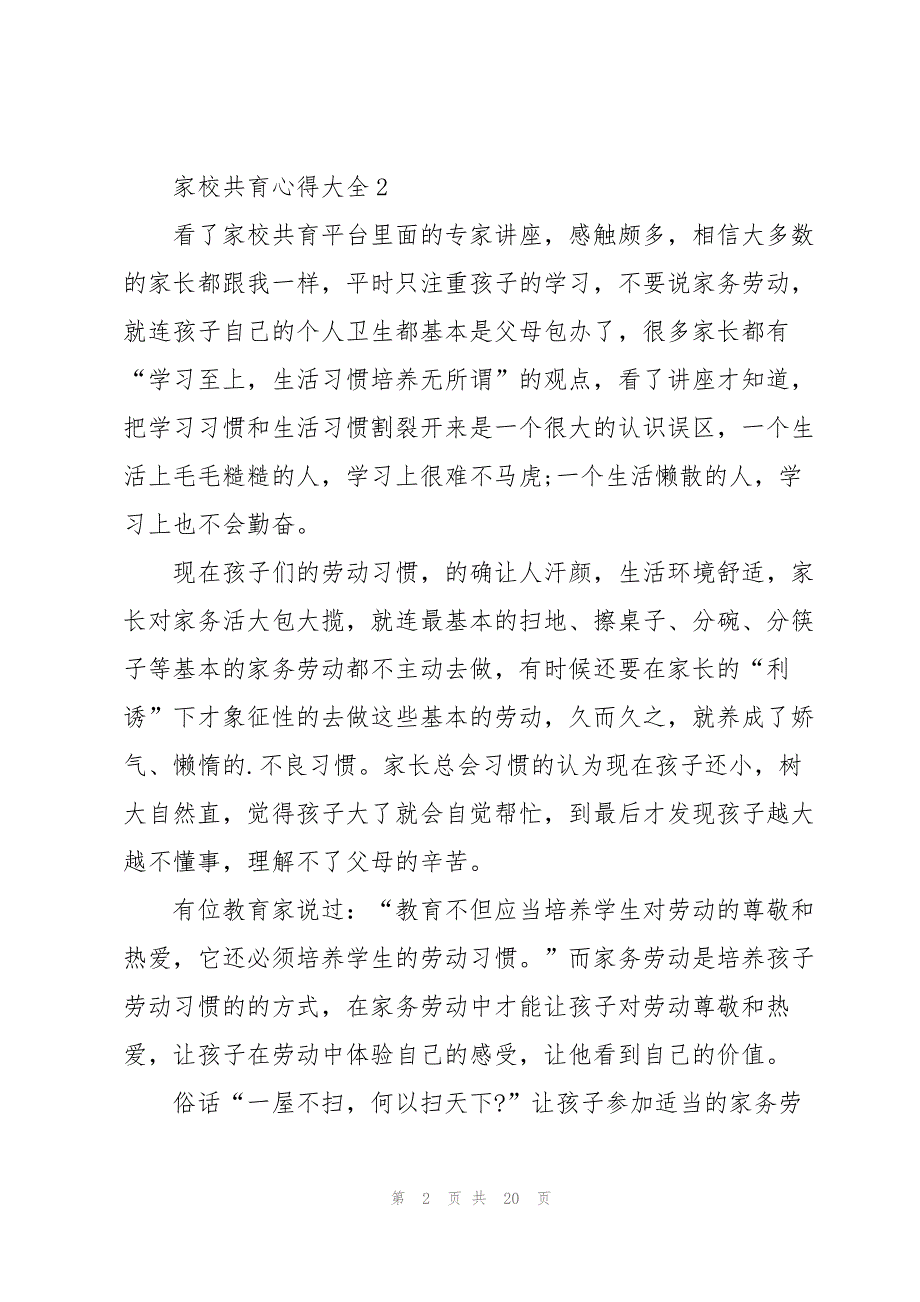 家校共育心得大全2
看了家校共育平台里面的专家讲座，感触颇多，相信大多数
的家长都跟我一样，平时只注重孩子的学习，不要说家务劳动，
就连孩子自己的个人卫生都基本是父母包办了，很多家长都有
“学习至上，生活习惯培养无所谓”的观点，看了讲座才知道，
把学习习惯和生活习惯割裂开来是一个很大的认识误区，一个生
活上毛毛糙糙的人，学习上很难不马虎;一个生活懒散的人，学
习上也不会勤奋。
现在孩子们的劳动习惯，的确让人汗颜，生活环境舒适，家
长对家务活大包大揽，就连最基本的扫地、擦桌子、分碗、分筷
子等基本的家务劳动都不主动去做，有时候还要在家长的“利
诱”下才象征性的去做这些基本的劳动，久而久之，就养成了娇
气、懒惰的.不良习惯。家长总会习惯的认为现在孩子还小，树
大自然直，觉得孩子大了就会自觉帮忙，到最后才发现孩子越大
越不懂事，理解不了父母的辛苦。
有位教育家说过：“教育不但应当培养学生对劳动的尊敬和
热爱，它还必须培养学生的劳动习惯。”而家务劳动是培养孩子
劳动习惯的的方式，在家务劳动中才能让孩子对劳动尊敬和热
爱，让孩子在劳动中体验自己的感受，让他看到自己的价值。
俗话“一屋不扫，何以扫天下?”让孩子参加适当的家务劳
第 2 页 共 20 页